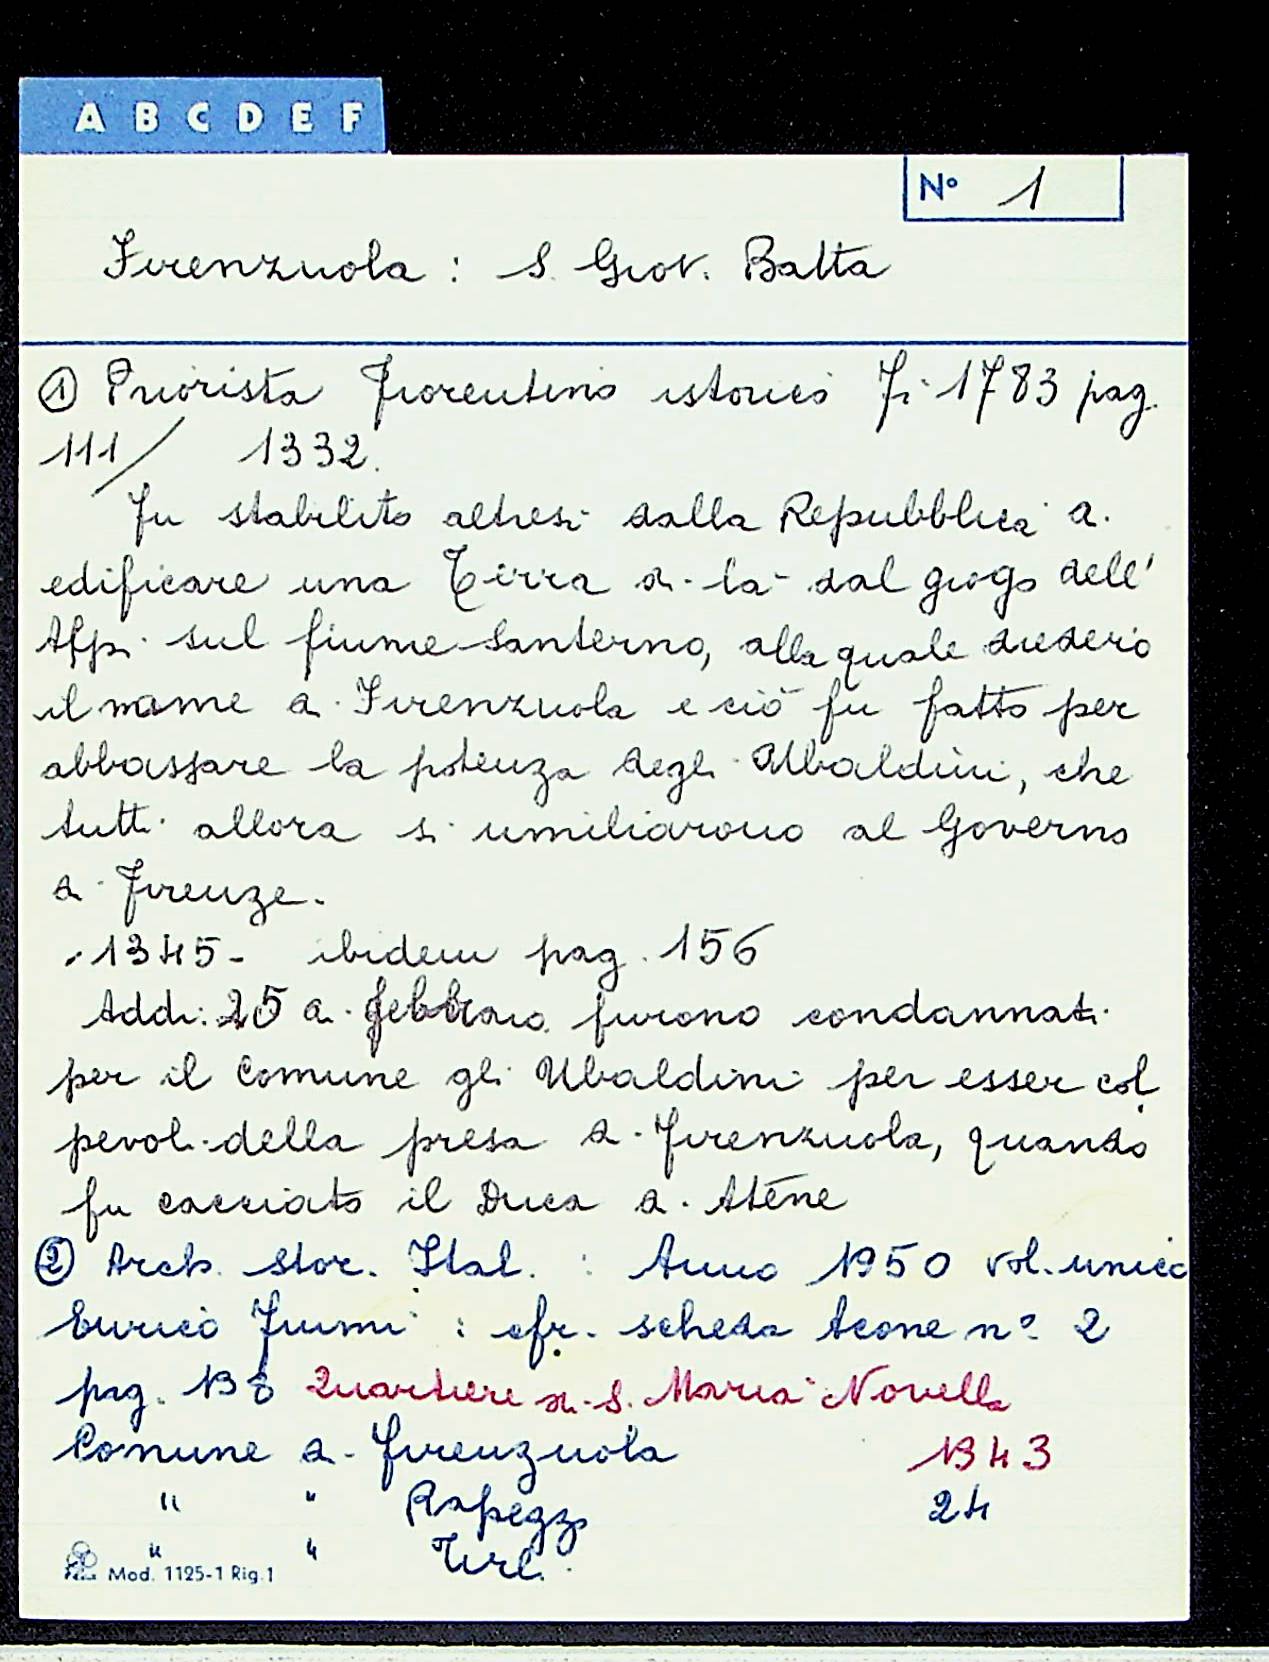 A B C D E F
N° 1
Firenzuola : S. Giov. Batta
① Priorista fiorentino istorico Fi 1783 pag.
111/ 1332.
Fu stabilito altresì dalla Repubblica di
edificare una Terra di là dal giogo dell'
Alpi sul fiume Santerno, alla quale diedero
il nome di Firenzuola e ciò fu fatto per
abbassare la potenza degli Ubaldini, che
tutti allora si umiliarono al Governo
di Firenze.
1345- ibidem pag. 156
Addi: 25 di febbraio furono condannati
per il Comune gli Ubaldini per esser col
pevoli della presa di Firenzuola, quando
fu cacciato il Duca di Atene
② Arch. Stor. Ital. : Anno 1950 vol. unico
Enrico Fiumi : cfr. scheda Acone n° 2
pag. 138 Quartiere di S. Maria Novella
Comune di Firenzuola 1343
" " Rapezzo 24
" " Tirli
Mod. 1125-1 Rig.1